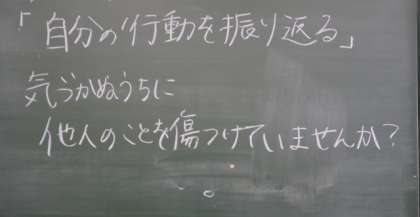 「自分の行動を振り返る」
気づかぬうちに
他人のことを傷つけていませんか?